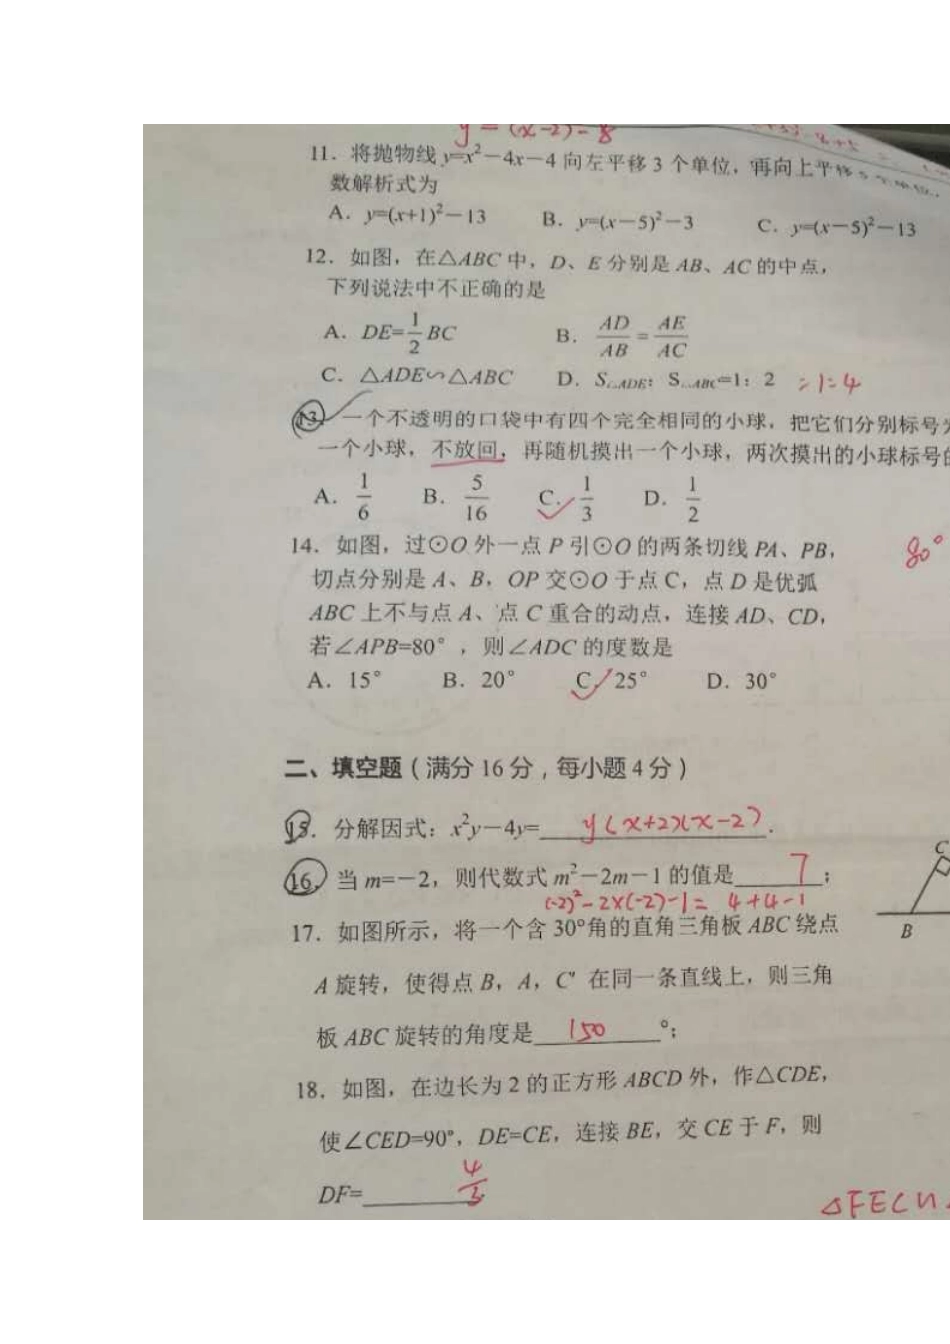 y=(x-2)²-8
11．将抛物线 y=x²－4x－4 向左平移 3 个单位，再向上平移 5 个单位，
数解析式为
A．y=(x+1)²－13 B．y=(x－5)²－3 C．y=(x－5)²－13
12．如图，在△ABC 中，D、E 分别是 AB、AC 的中点，
下列说法中不正确的是
A．DE=1/2 BC B．AD/AB=AE/AC
C．△ADE∽△ABC D．S△ADE：S△ABC=1：2 =1:4
13．一个不透明的口袋中有四个完全相同的小球，把它们分别标号为
一个小球，不放回，再随机摸出一个小球，两次摸出的小球标号的
A．1/6 B．5/16 C．1/3 D．1/2
14．如图，过⊙O 外一点 P 引⊙O 的两条切线 PA、PB， 80°
切点分别是 A、B，OP 交⊙O 于点 C，点 D 是优弧
ABC 上不与点 A、点 C 重合的动点，连接 AD、CD，
若∠APB=80°，则∠ADC 的度数是
A．15° B．20° C．25° D．30°
二、填空题（满分 16 分，每小题 4 分）
15．分解因式：x²y－4y= y(x+2)(x-2) .
C
16．当 m=－2，则代数式 m²－2m－1 的值是 7 ；
(-2)²-2×(-2)-1= 4+4-1
17．如图所示，将一个含 30°角的直角三角板 ABC 绕点
B
A 旋转，使得点 B，A，C′ 在同一条直线上，则三角
板 ABC 旋转的角度是 150 °；
18．如图，在边长为 2 的正方形 ABCD 外，作△CDE，
使∠CED=90°，DE=CE，连接 BE，交 CE 于 F，则
DF= 4/3
△FEC∽